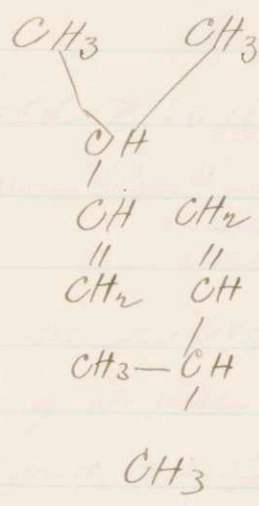 CH3 CH3
CH
CH CH2
CH2 CH
CH3—CH
CH3